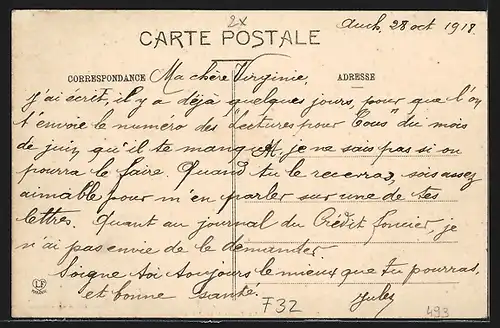 2x
Auch, 28 oct 1918
CARTE POSTALE
CORRESPONDANCE Ma chère Virginie, ADRESSE
J'ai écrit, il y a déjà quelques jours, pour que l'on
t'envoie le numéro des "Lectures pour Tous" du mois
de juin qu'il te manque. Et je ne sais pas si on
pourra le faire. Quand tu le recevras, sois assez
aimable pour m'en parler sur une de tes
lettres. Quant au journal du Crédit foncier, je
n'ai pas envie de le demander
Soigne toi toujours le mieux que tu pourras,
et bonne santé.
Jules
LF
F32
493